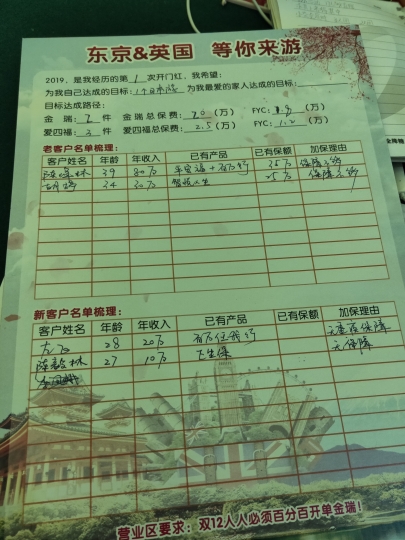 东京&英国 等你来游
2019,是我经历的第1次开门红,我希望:
为我自己达成的目标:1个日本游 为我最爱的家人达成的目标:
目标达成路径:
金瑞: 2 件 金瑞总保费: 20 (万) FYC: (万)
爱四福: 3 件 爱四福总保费: 2.5 (万) FYC: 1.2 (万)
老客户名单梳理:
客户姓名 年龄 年收入 已有产品 已有保额 加保理由
39 80万 平安福+百万行 35万 保障不够
34 30万 智胜人生 25万 保障不够
新客户名单梳理:
客户姓名 年龄 年收入 已有产品 已有保额 加保理由
28 20万 百万任我行 保障
27 10万 无保障
营业区要求:双12人人必须百分百开单金瑞!